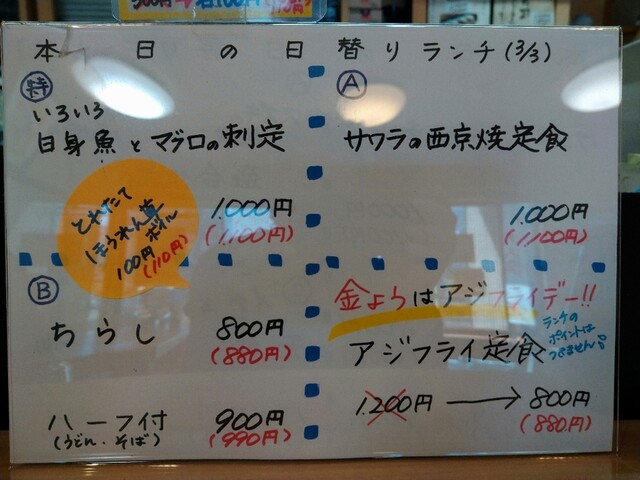 本日の日替りランチ(3/3)
特
いろいろ
白身魚とマグロの刺定
1.000円
(1,100円)
とれたて
ほうれん草
ボイル
100円(110円)
A
サワラの西京焼定食
1.000円
(1,100円)
B
ちらし 800円
(880円)
ハーフ付 900円
(うどん・そば) (990円)
金ようはアジフライデー!!
アジフライ定食
ランチの
ポイントは
つきません
1.200円 → 800円
(880円)